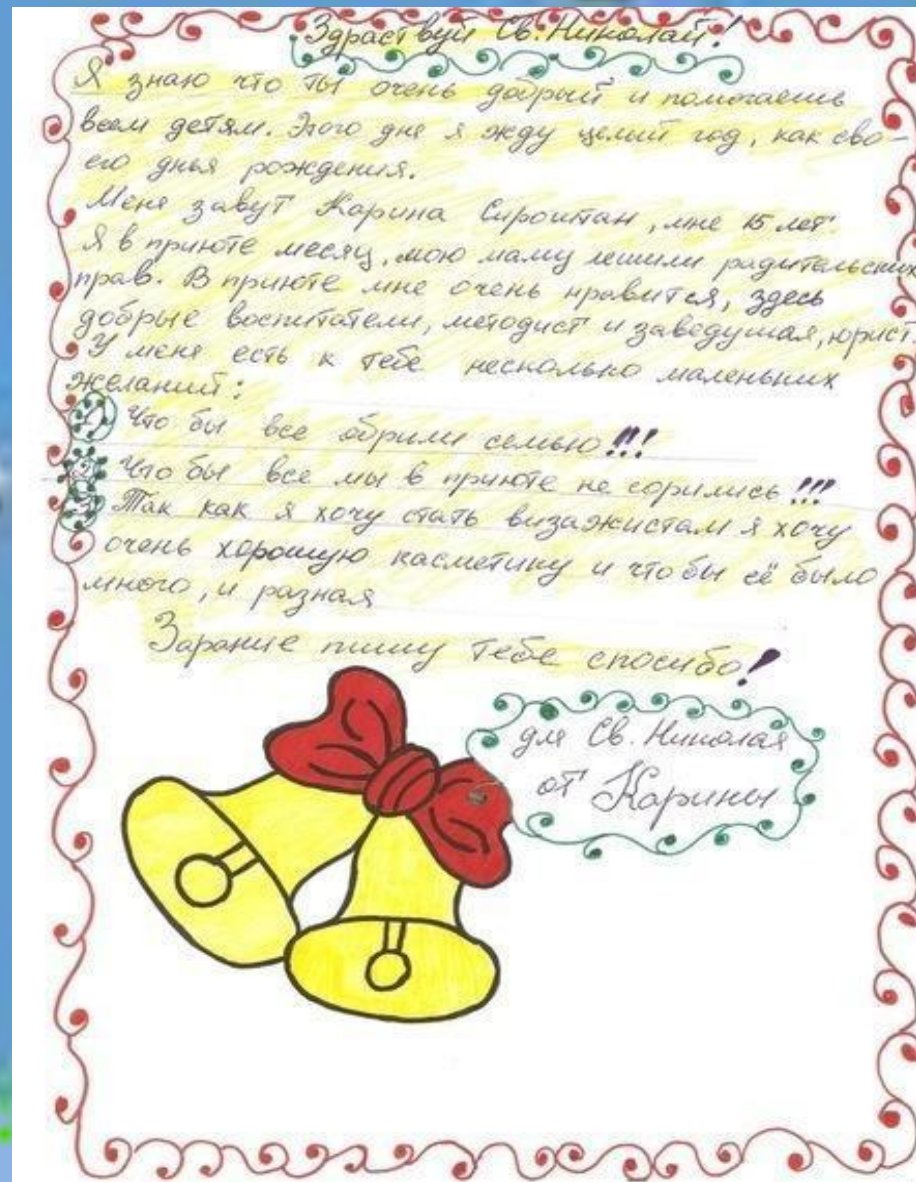 Здраствуй Св. Николай!
Я знаю что ты очень добрый и помогаешь
всем детям. Этого дня я жду целый год, как сво-
его днья рождения.
Меня завут Карина Сироштан, мне 15 лет.
Я в приюте месяц, мою маму лешили радительских
прав. В приюте мне очень нравится, здесь
добрые воспитатели, методист и заведущая, юрист.
У меня есть к тебе несколько маленьких
желаний:
1 Что бы все обрили семью!!!
2 Что бы все мы в приюте не сорились!!!
3 Так как я хочу стать визажистам я хочу
очень хорошую касметику и что бы её было
много, и разная
Зарание пишу тебе спосибо!
для Св. Николая
от Карины